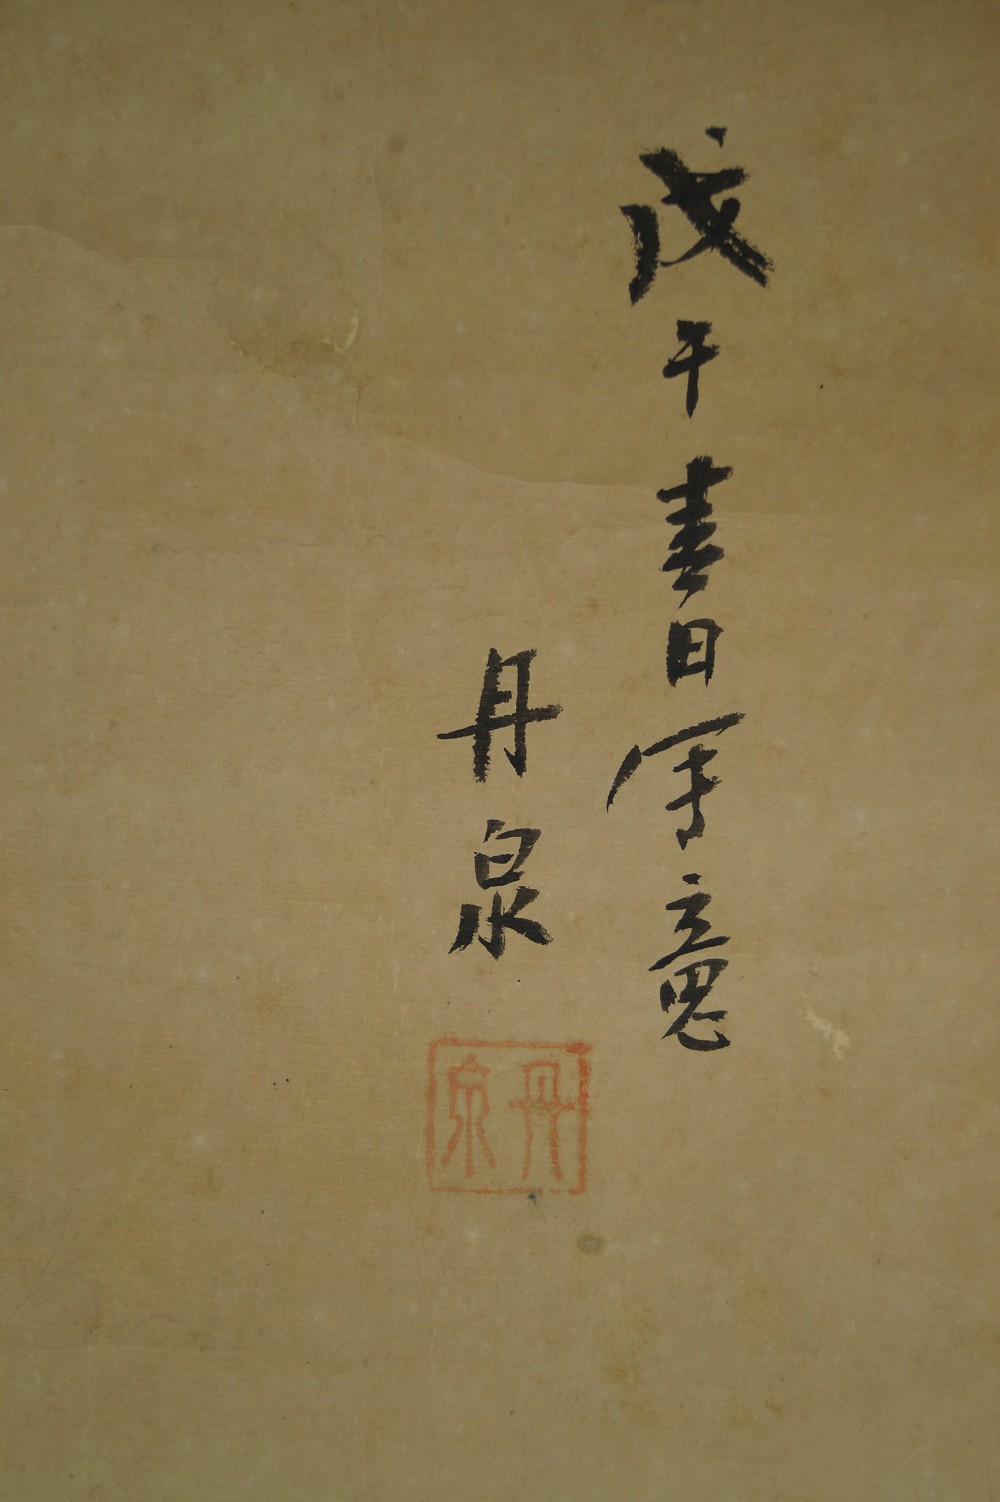 戊午春日写意
丹泉
丹泉